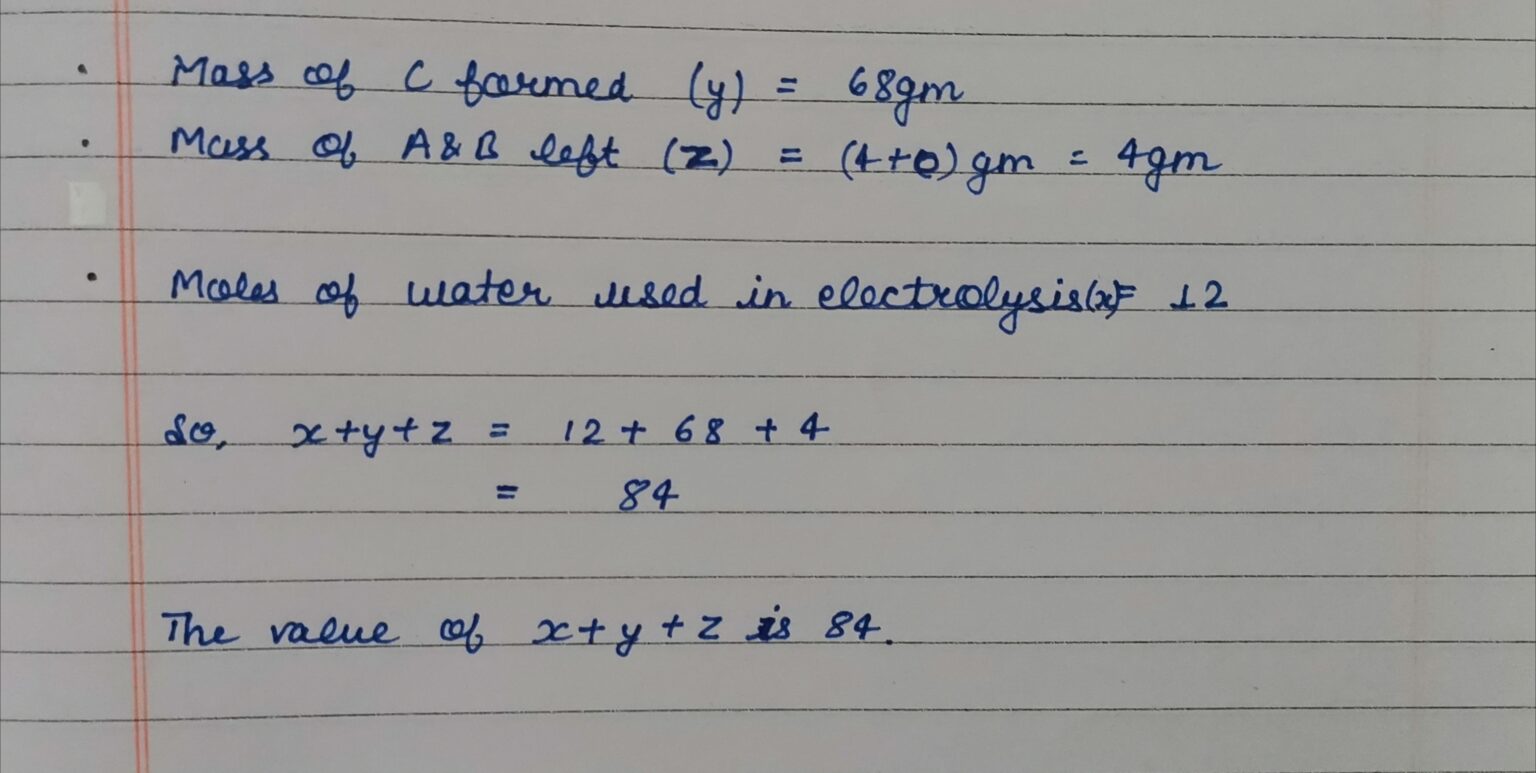 • Mass of C formed (y) = 68gm
• Mass of A & B left (z) = (4+0) gm = 4gm
• Moles of water used in electrolysis(x)= 12
So, x+y+z = 12 + 68 + 4
= 84
The value of x+y+z is 84.